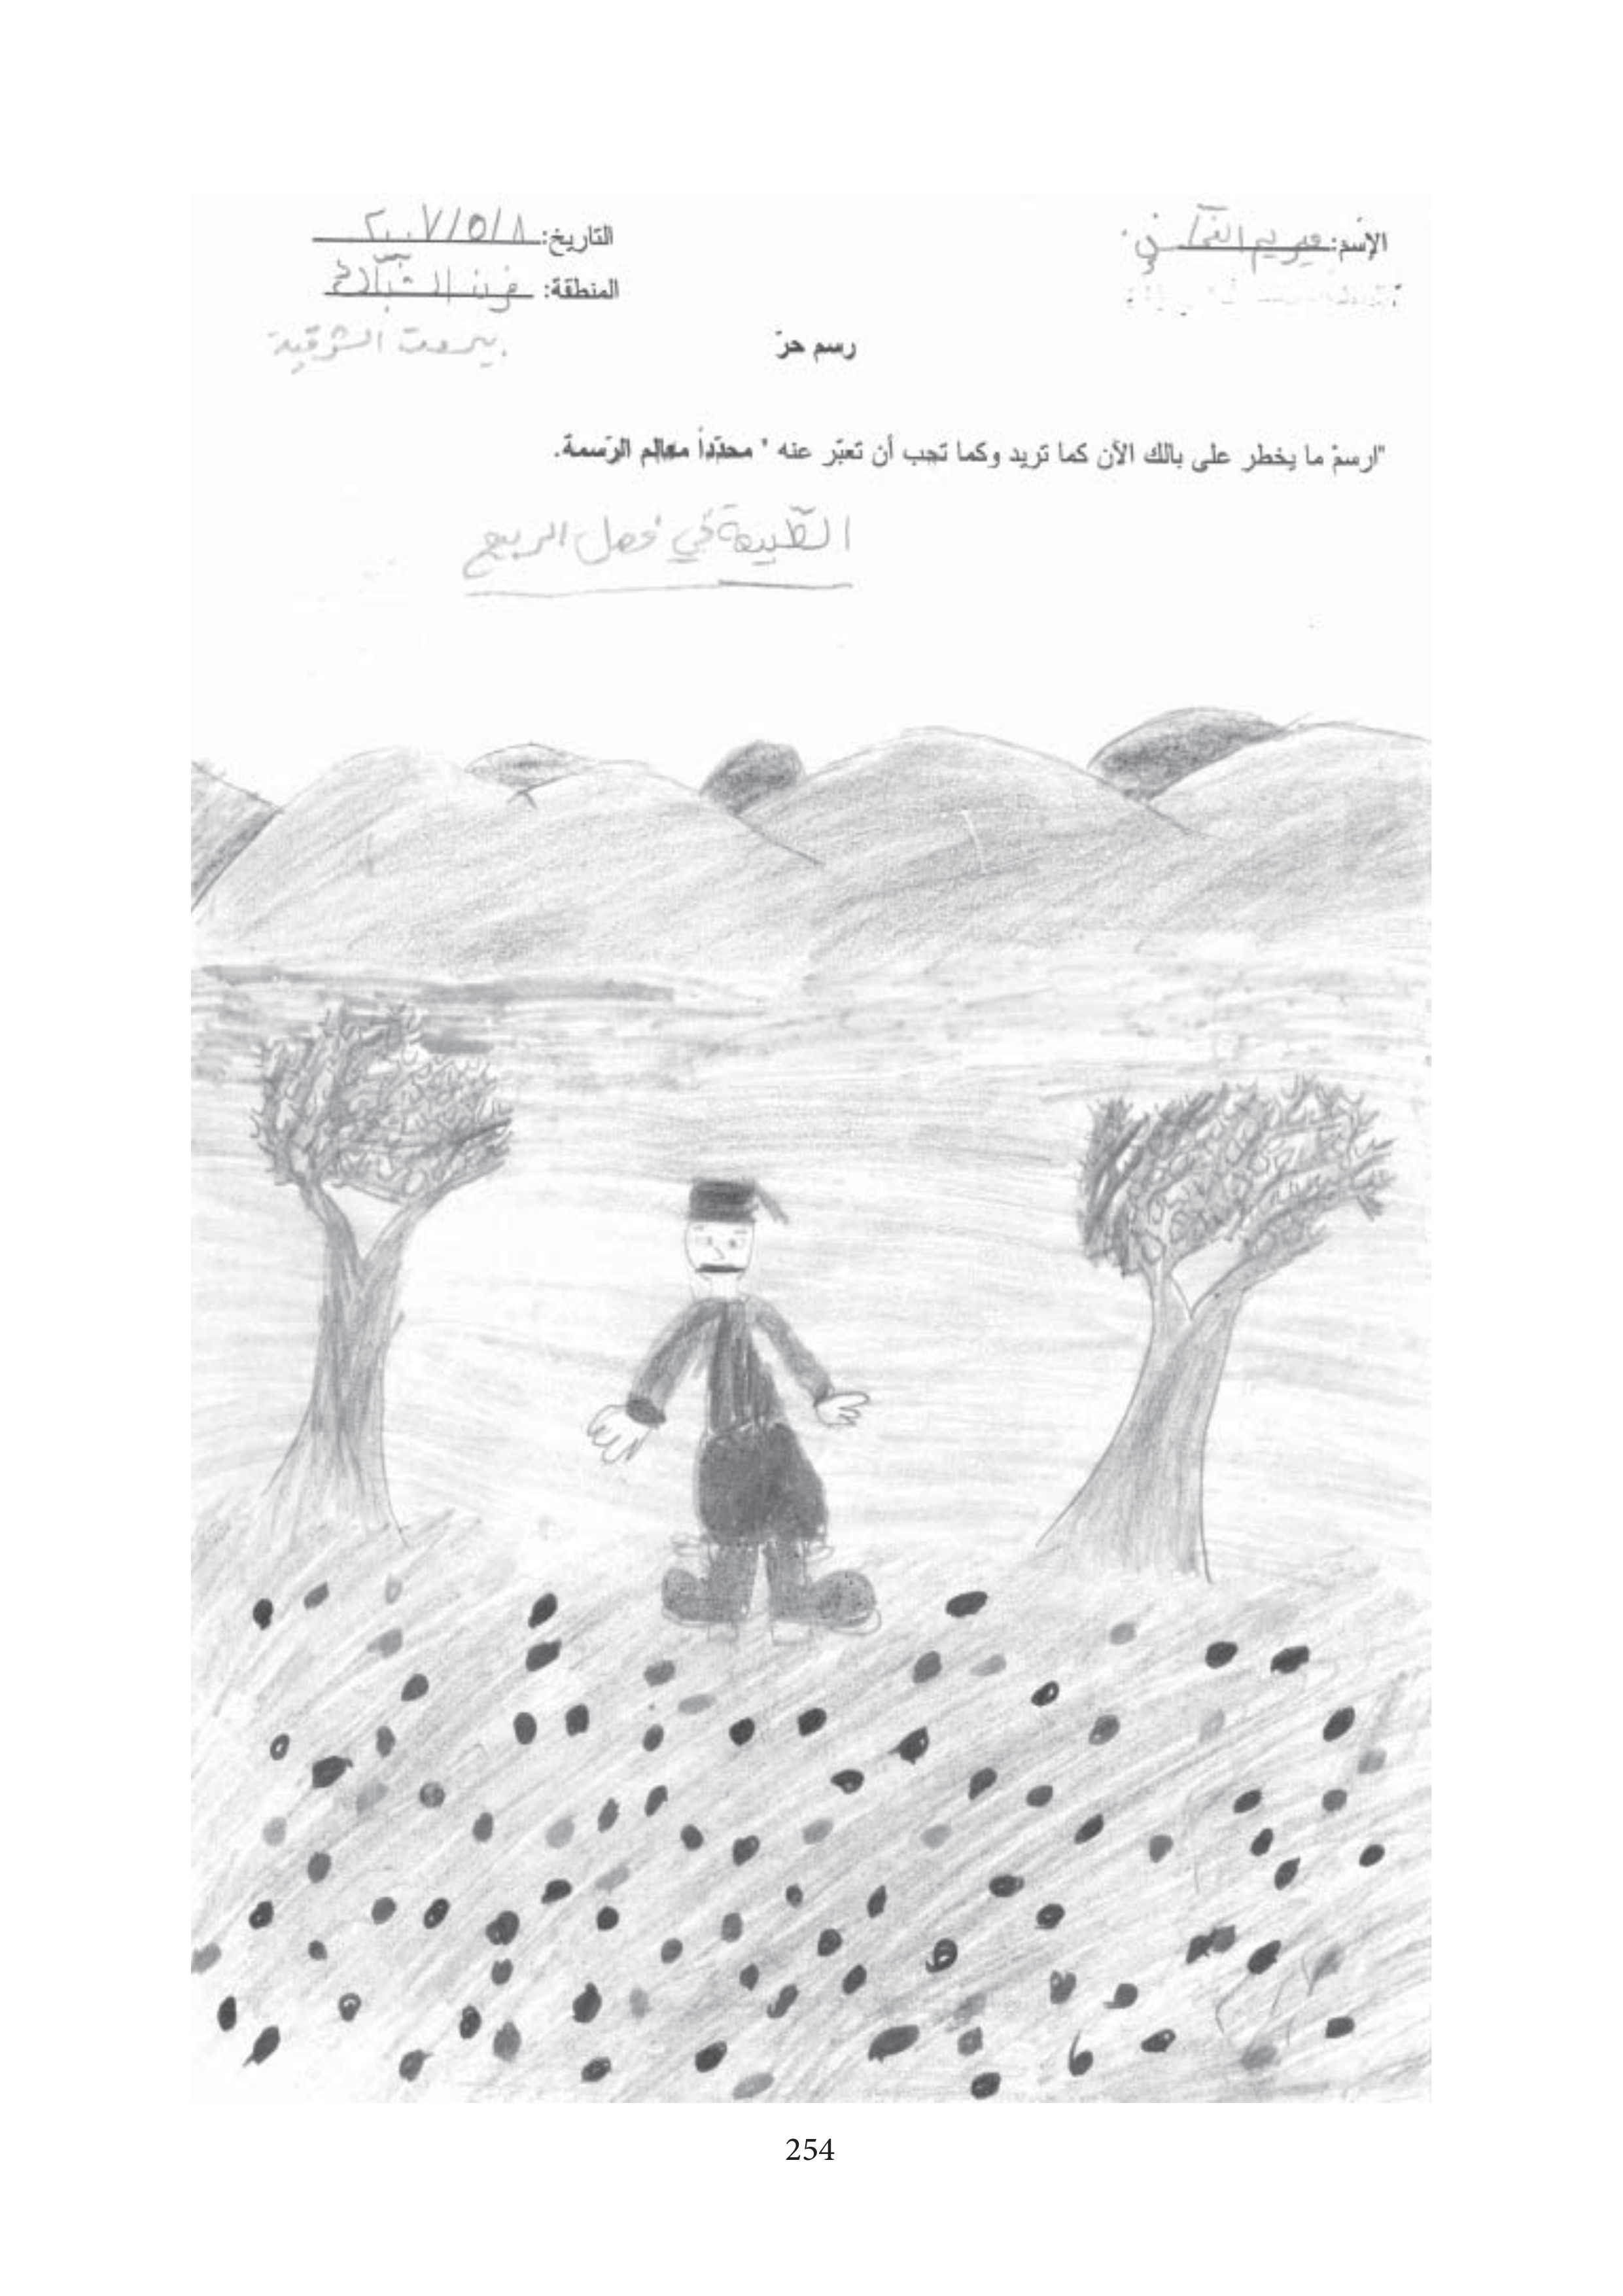 الإسم: ميريم
التاريخ: ٢٠٠٧/٥/٨
المنطقة: فرن الشبّاك
بيروت الشرقية
رسم حرّ
"ارسمْ ما يخطر على بالك الآن كما تريد وكما تحب أن تعبّر عنه " محدّداً معالم الرّسمة.
الطّبيعة في فصل الربيع
254